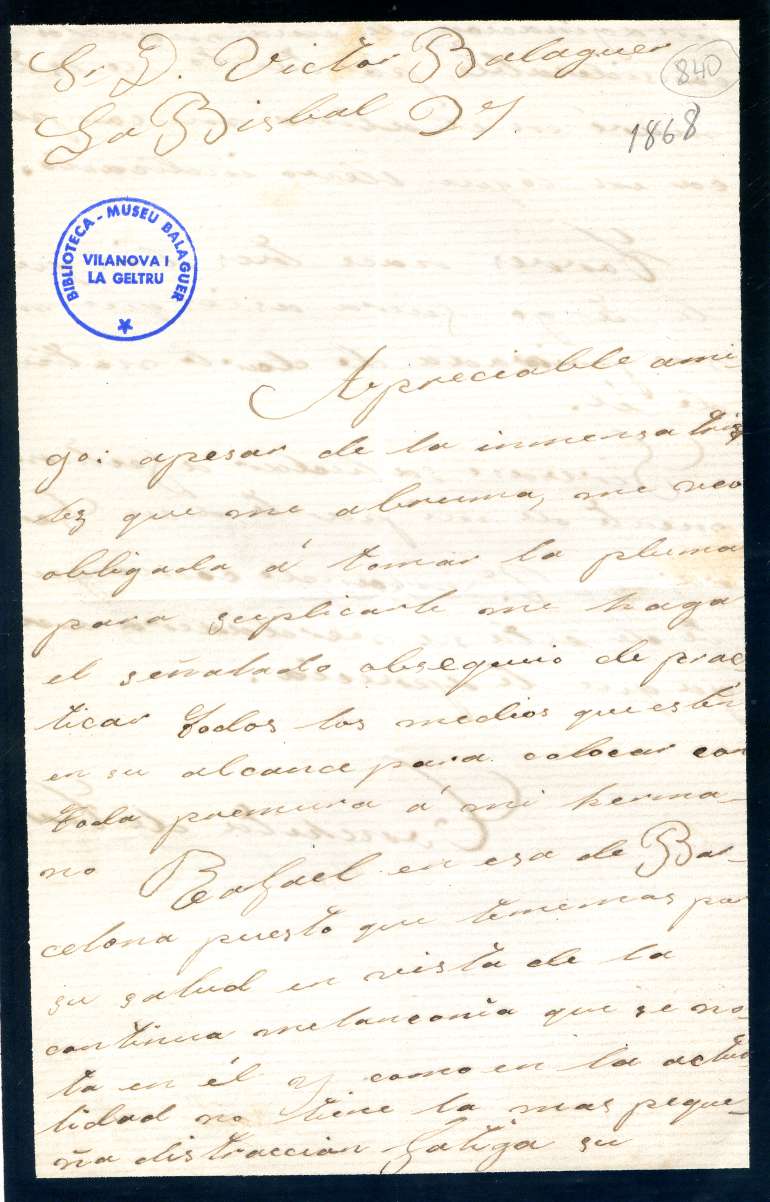 Sr. D. Victor Balaguer
La Bisbal 27.
840
1868
BIBLIOTECA - MUSEU BALAGUER
VILANOVA I
LA GELTRU
Apreciable ami-
go: apesar de la inmensa tris
tez que me abruma, me veo
obligada á tomar la pluma
para suplicarle me haga
el señalado obsequio de prac
ticar todos los medios que estén
en su alcance para colocar con
toda premura á mi herma-
no Rafael en esa de Bar-
celona puesto que tememos por
su salud en vista de la
continua melanconia que se no-
ta en él y como en la actua
lidad no tiene la mas peque-
ña distraccion fatiga su